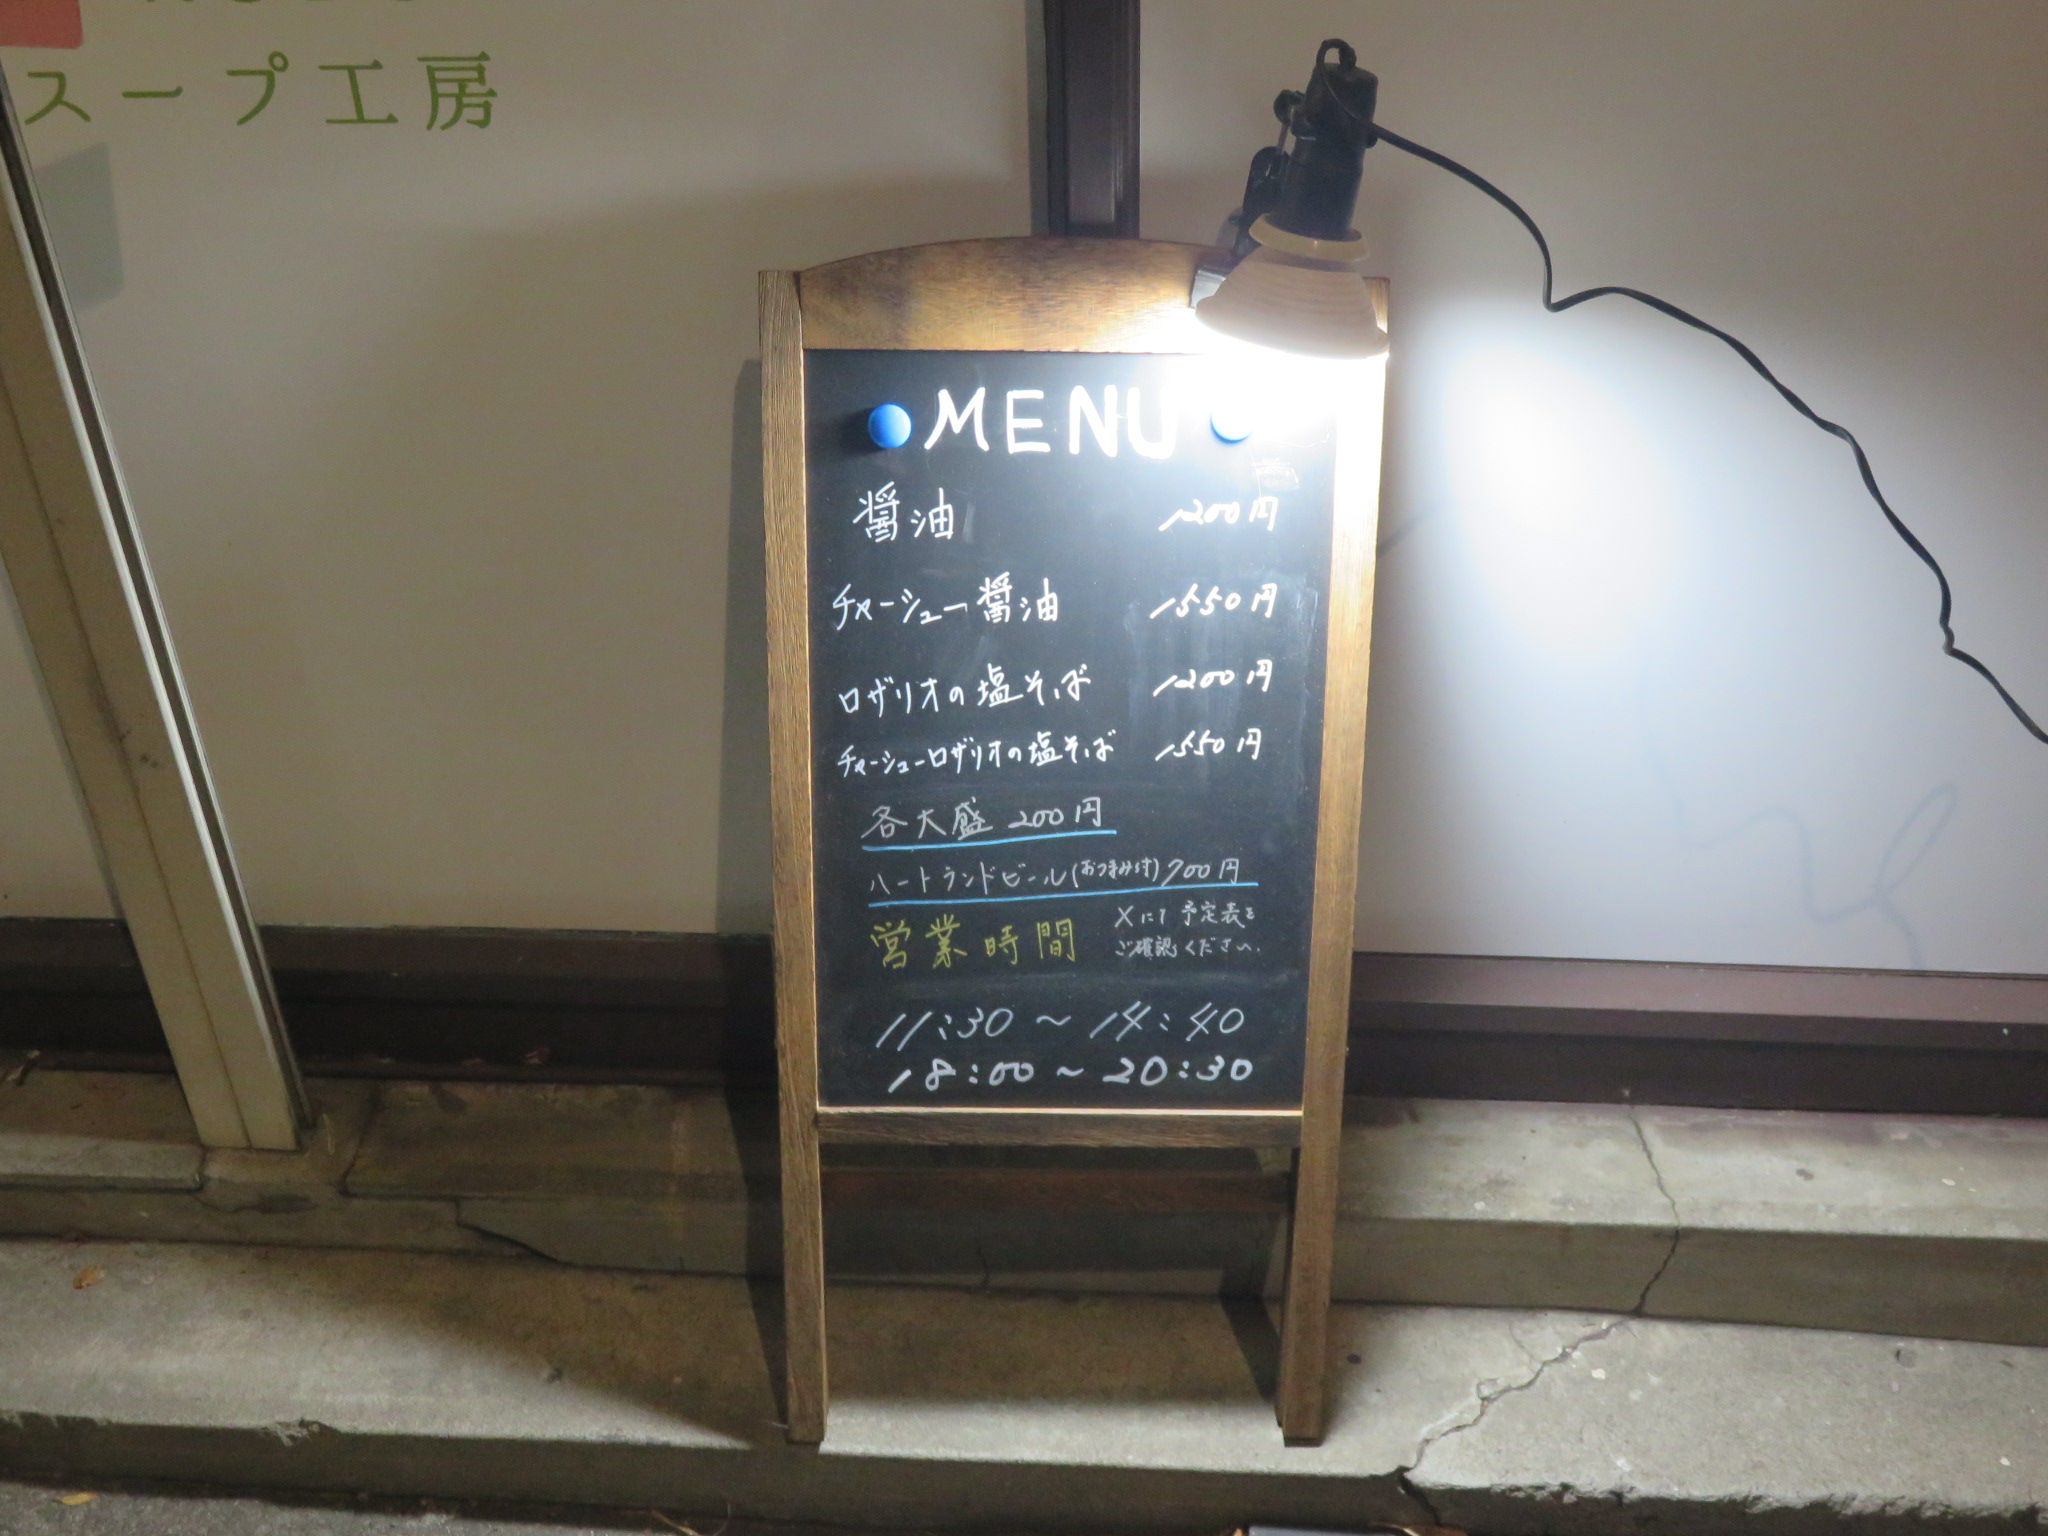 スープ工房
MENU
醤油 1200円
チャーシュー醤油 1550円
ロザリオの塩そば 1200円
チャーシューロザリオの塩そば 1550円
各大盛 200円
ハートランドビール(おつまみ付) 700円
営業時間
Xにて予定表を
ご確認ください。
11:30 ~ 14:40
18:00 ~ 20:30